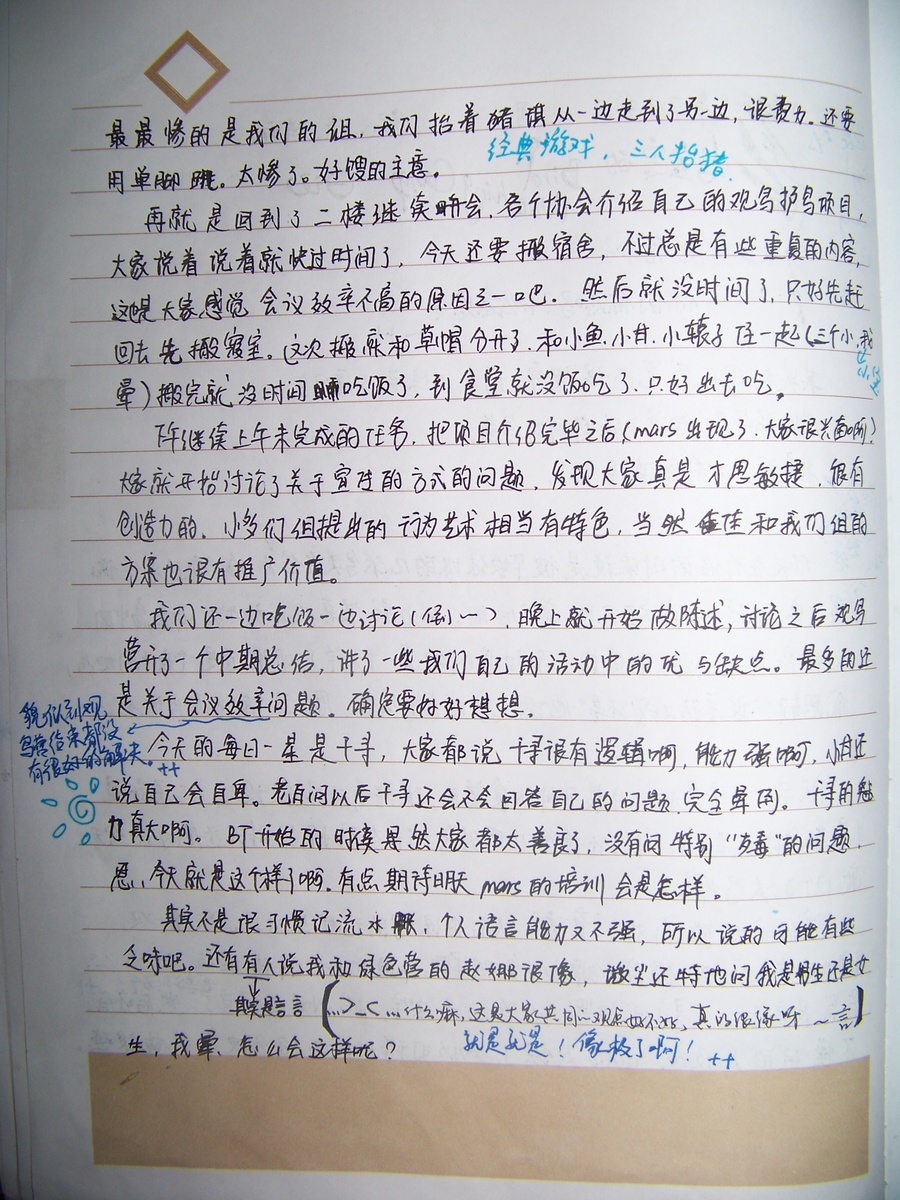 最最惨的是我们的组，我们抬着猪琪从一边走到了另一边，很费力。还要
经典游戏，三人抬猪
用单脚跳。太惨了。好馊的主意。
再就是回到了二楼继续研会，各个协会介绍自己的观鸟护鸟项目，
大家说着说着就快过时间了，今天还要搬宿舍，不过总是有些重复的内容，
这也是大家感觉会议效率不高的原因之一吧。然后就没时间了，只好先赶
回去先搬寝室。这次搬就和草帽分开了，和小鱼、小甘、小辕子住一起（三个小，我
晕）搬完就没时间吃饭了，到食堂就没饭吃了，只好出去吃。
下午继续上午未完成的任务，把项目介绍完毕之后（mars出现了，大家很兴奋啊）
大家就开始讨论了关于宣传的方式的问题，发现大家真是才思敏捷，很有
创造力的，小多们组提出的行为艺术相当有特色，当然和我们组的
方案也很有推广价值。
我们还一边吃饭一边讨论（倒～），晚上就开始做陈述，讨论之后观鸟
营开了一个中期总结，讲了一些我们自己的活动中的优与缺点。最多的还
是关于会议效率问题。确定要好好想想。
貌似到观
鸟营结束都没
有很好的解决。++
今天的每日一星是千寻，大家都说千寻很有逻辑啊，能力强啊，小甘还
说自己会自卑。老百问以后千寻还会不会回答自己的问题，完全晕倒。千寻的魅
力真大啊。BT开始的时候果然大家都太善良了，没有问特别“歹毒”的问题，
恩，今天就是这个样子啊。有点期待明天mars的培训会是怎样。
其实不是很习惯记流水账，个人语言能力又不强，所以说的可能有些
乏味吧。还有有人说我和绿色营的赵娜很像，微尘还特地问我是男生还是女
其实是言言（…>_<…什么嘛，这是大家共同的观点好不好，真的很像呀～言）
生，我晕，怎么会这样呢？
就是就是！像极了啊！++